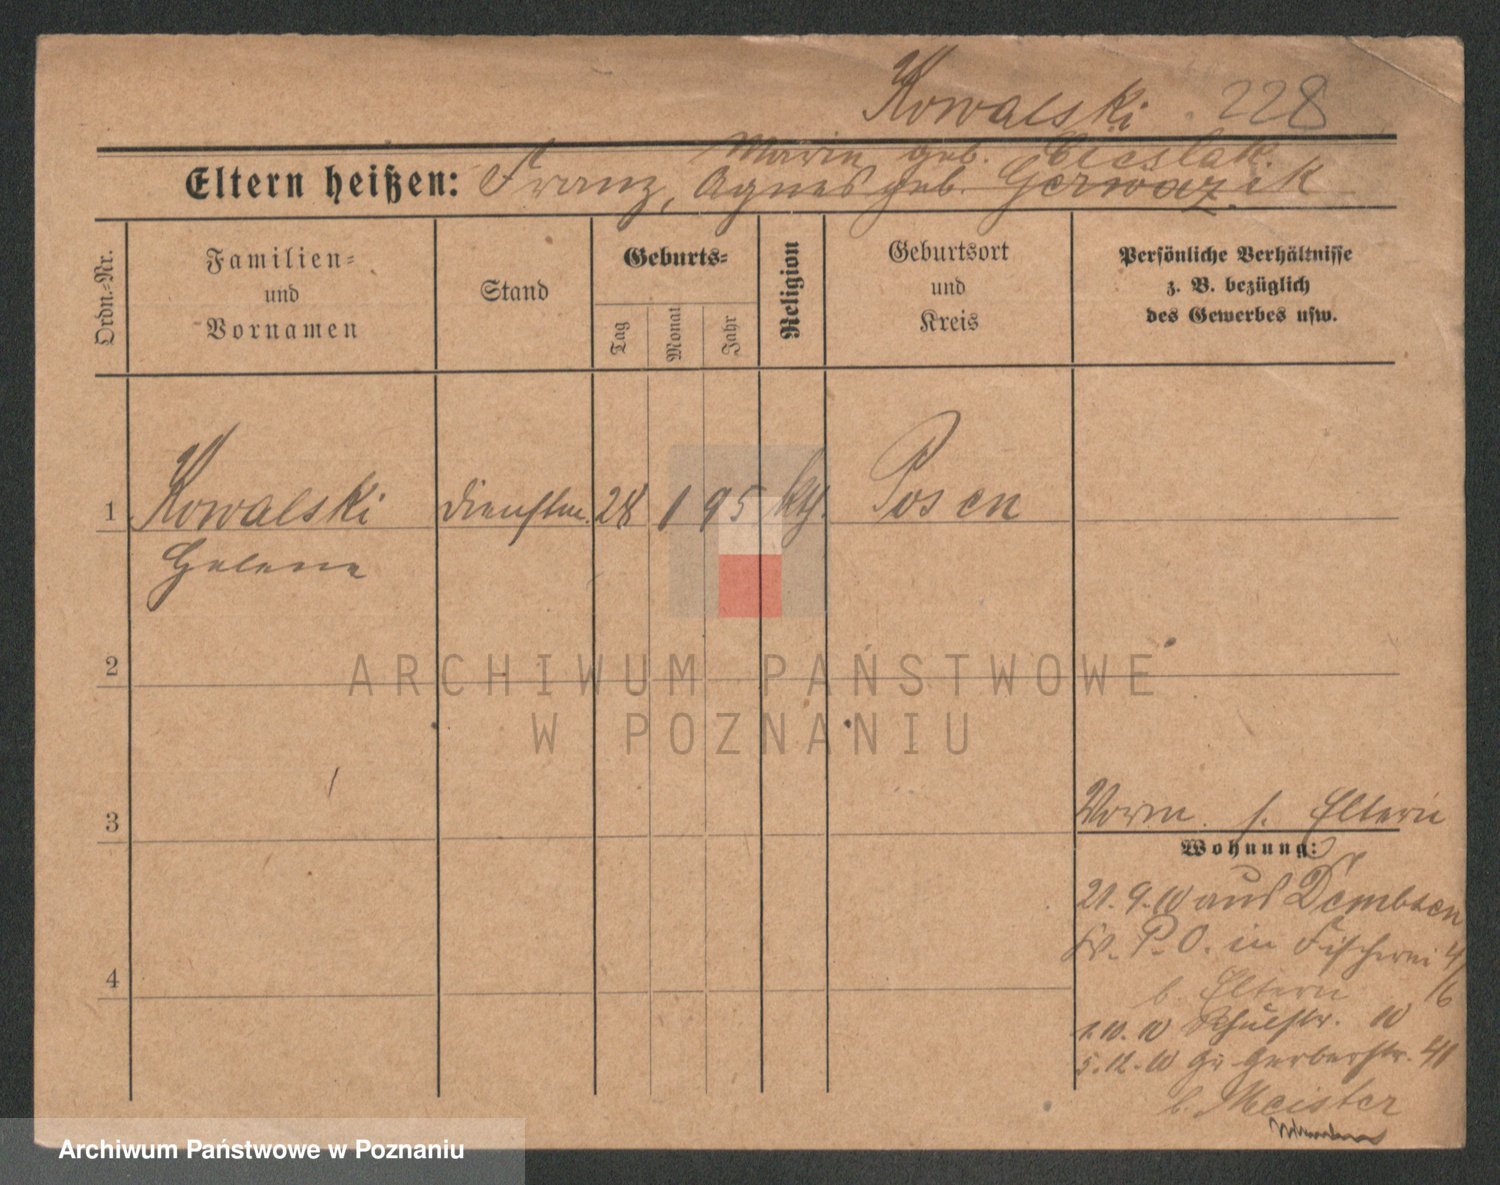 Kowalski 228
Marie geb. Cieslak.
Eltern heißen: Franz, Agnes geb. Gerwazik
Ordn.-Nr.
Familien-
und
Vornamen
Stand
Geburts-
Tag
Monat
Jahr
Religion
Geburtsort
und
Kreis
Persönliche Verhältnisse
z. B. bezüglich
des Gewerbes usw.
1 Kowalski Dienstm. 28 1 95 kth. Posen
Helene
2
ARCHIWUM PAŃSTWOWE
W POZNANIU
3
Vorm. s. Eltern
Wohnung:
21.9.10 aus Dembsen
P. O. in Fischerei 4/
6
b. Eltern
1.10.10 Schulstr. 10
5.12.10 Gerberstr. 41
b. Meister
4
Archiwum Państwowe w Poznaniu